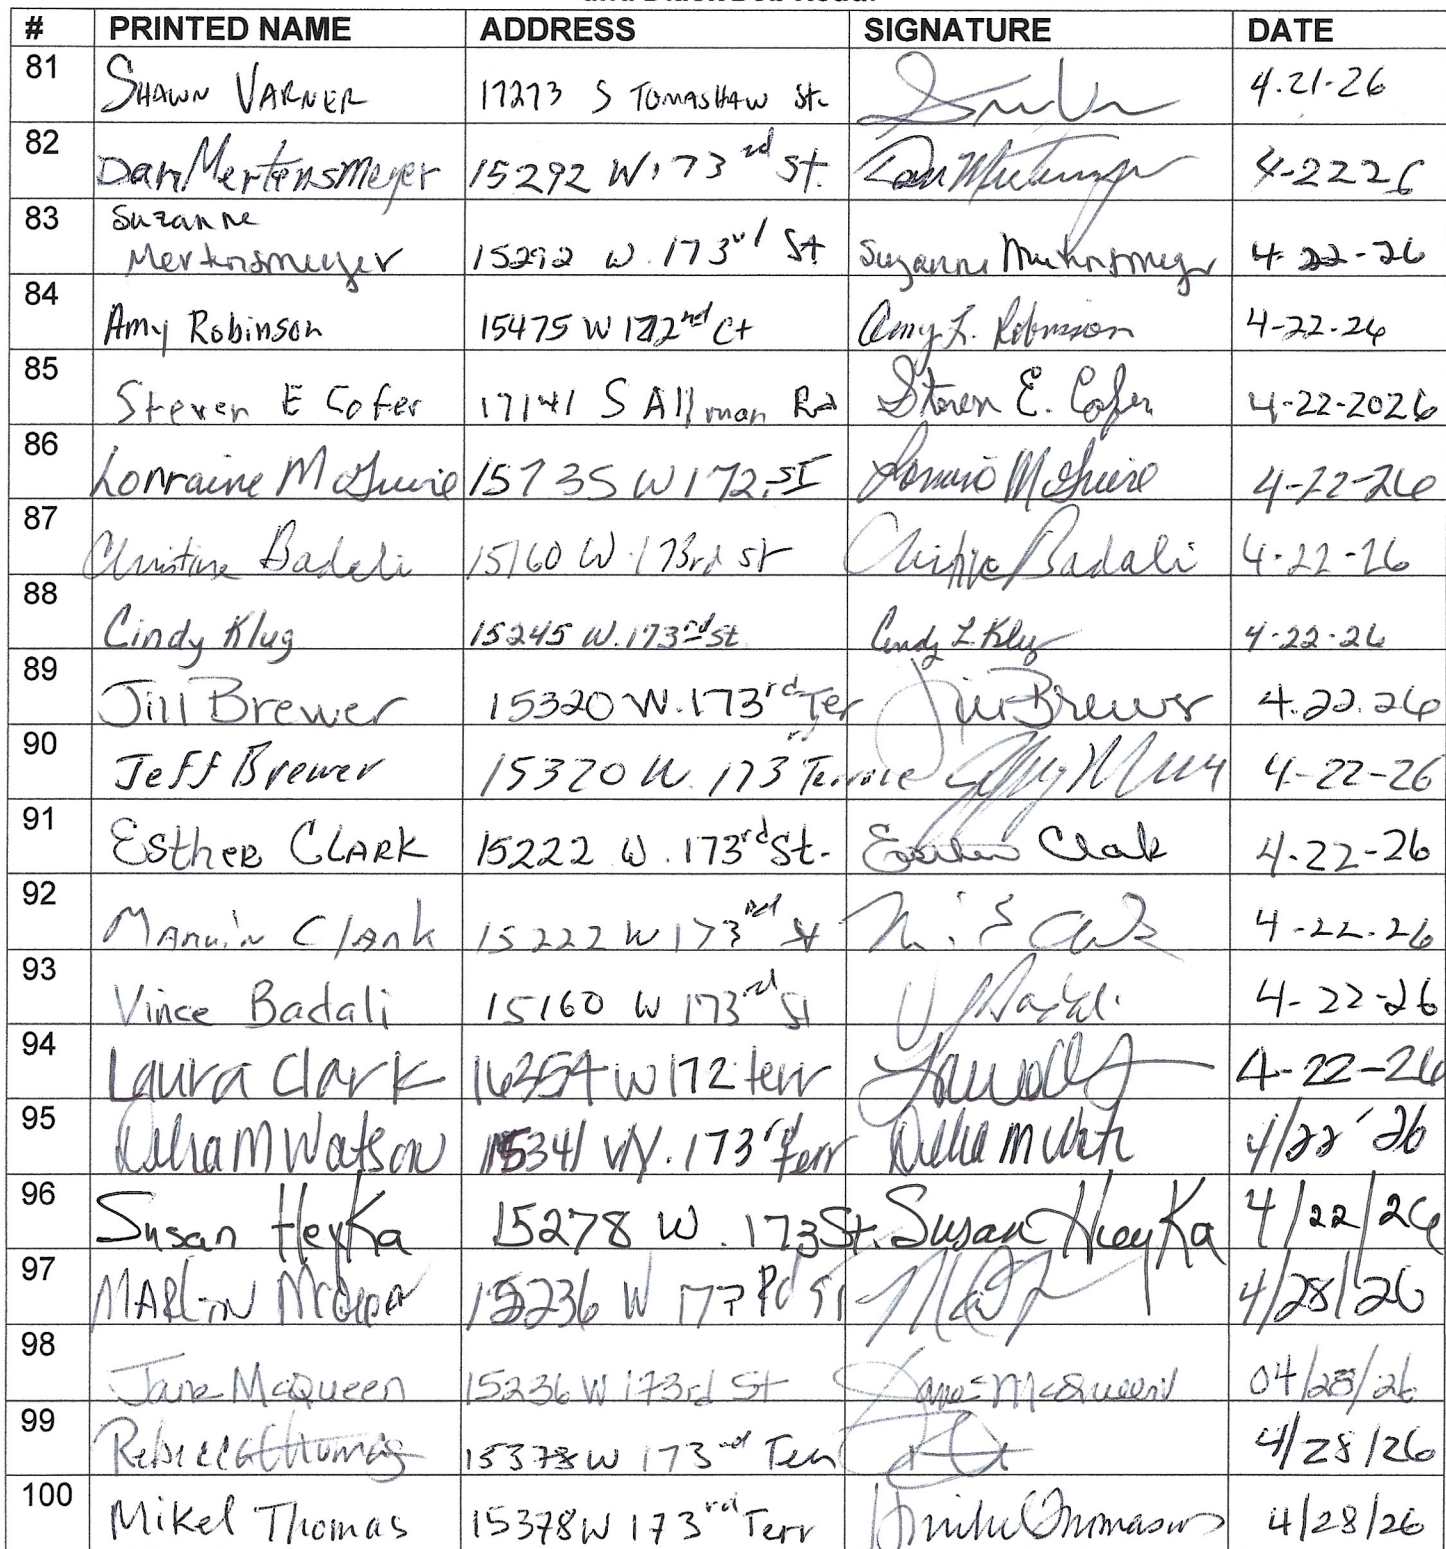 # PRINTED NAME ADDRESS SIGNATURE DATE
81 SHAWN VARNER 17273 S TOMASHAW St. 4.21-26
82 Dan Mertensmeyer 15292 W. 173rd St. 4-22 26
83 Suzanne
Mertensmeyer 15292 W. 173rd St Suzanne Mertensmeyer 4-22-26
84 Amy Robinson 15475 W 172nd Ct Amy L. Robinson 4-22-26
85 Steven E Cofer 17141 S Allman Rd Steven E. Cofer 4-22-2026
86 Lorraine McGuire 15735 W 172 ST Lorraine McGuire 4-22-26
87 Christine Badali 15160 W. 173rd St Christine Badali 4-22-26
88 Cindy Klug 15245 W. 173rd St Cindy L Klug 4-22-26
89 Jill Brewer 15320 W. 173rd Ter Jill Brewer 4.22.26
90 Jeff Brewer 15320 W. 173rd Terrace 4-22-26
91 EstheR CLARK 15222 W. 173rd St. Esther Clark 4-22-26
92 MARVIN ClARk 15222 W 173rd St 4-22-26
93 Vince Badali 15160 W 173rd St V Badali 4-22-26
94 Laura Clark 16354 W 172 terr 4-22-26
95 Delia M Watson 15341 W. 173rd Terr 4/22 '26
96 Susan HeyKa 15278 W. 173 St. Susan HeyKa 4/22/26
97 MARLiN 15236 W 173 Rd St 4/28/26
98 Jane McQueen 15236 W 173rd St Jane McQueen 04/28/26
99 Rebecca Thomas 15378 W 173rd Terr 4/28/26
100 Mikel Thomas 15378 W 173rd Terr 4/28/26